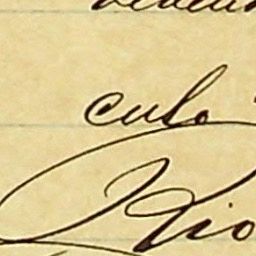 culo
Rio